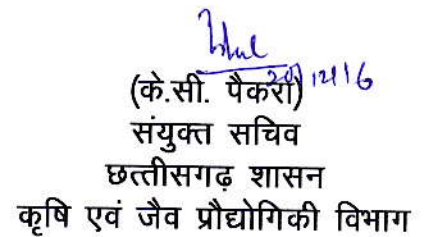 20/12/16
(के.सी. पैकरा)
संयुक्त सचिव
छत्तीसगढ़ शासन
कृषि एवं जैव प्रौद्योगिकी विभाग